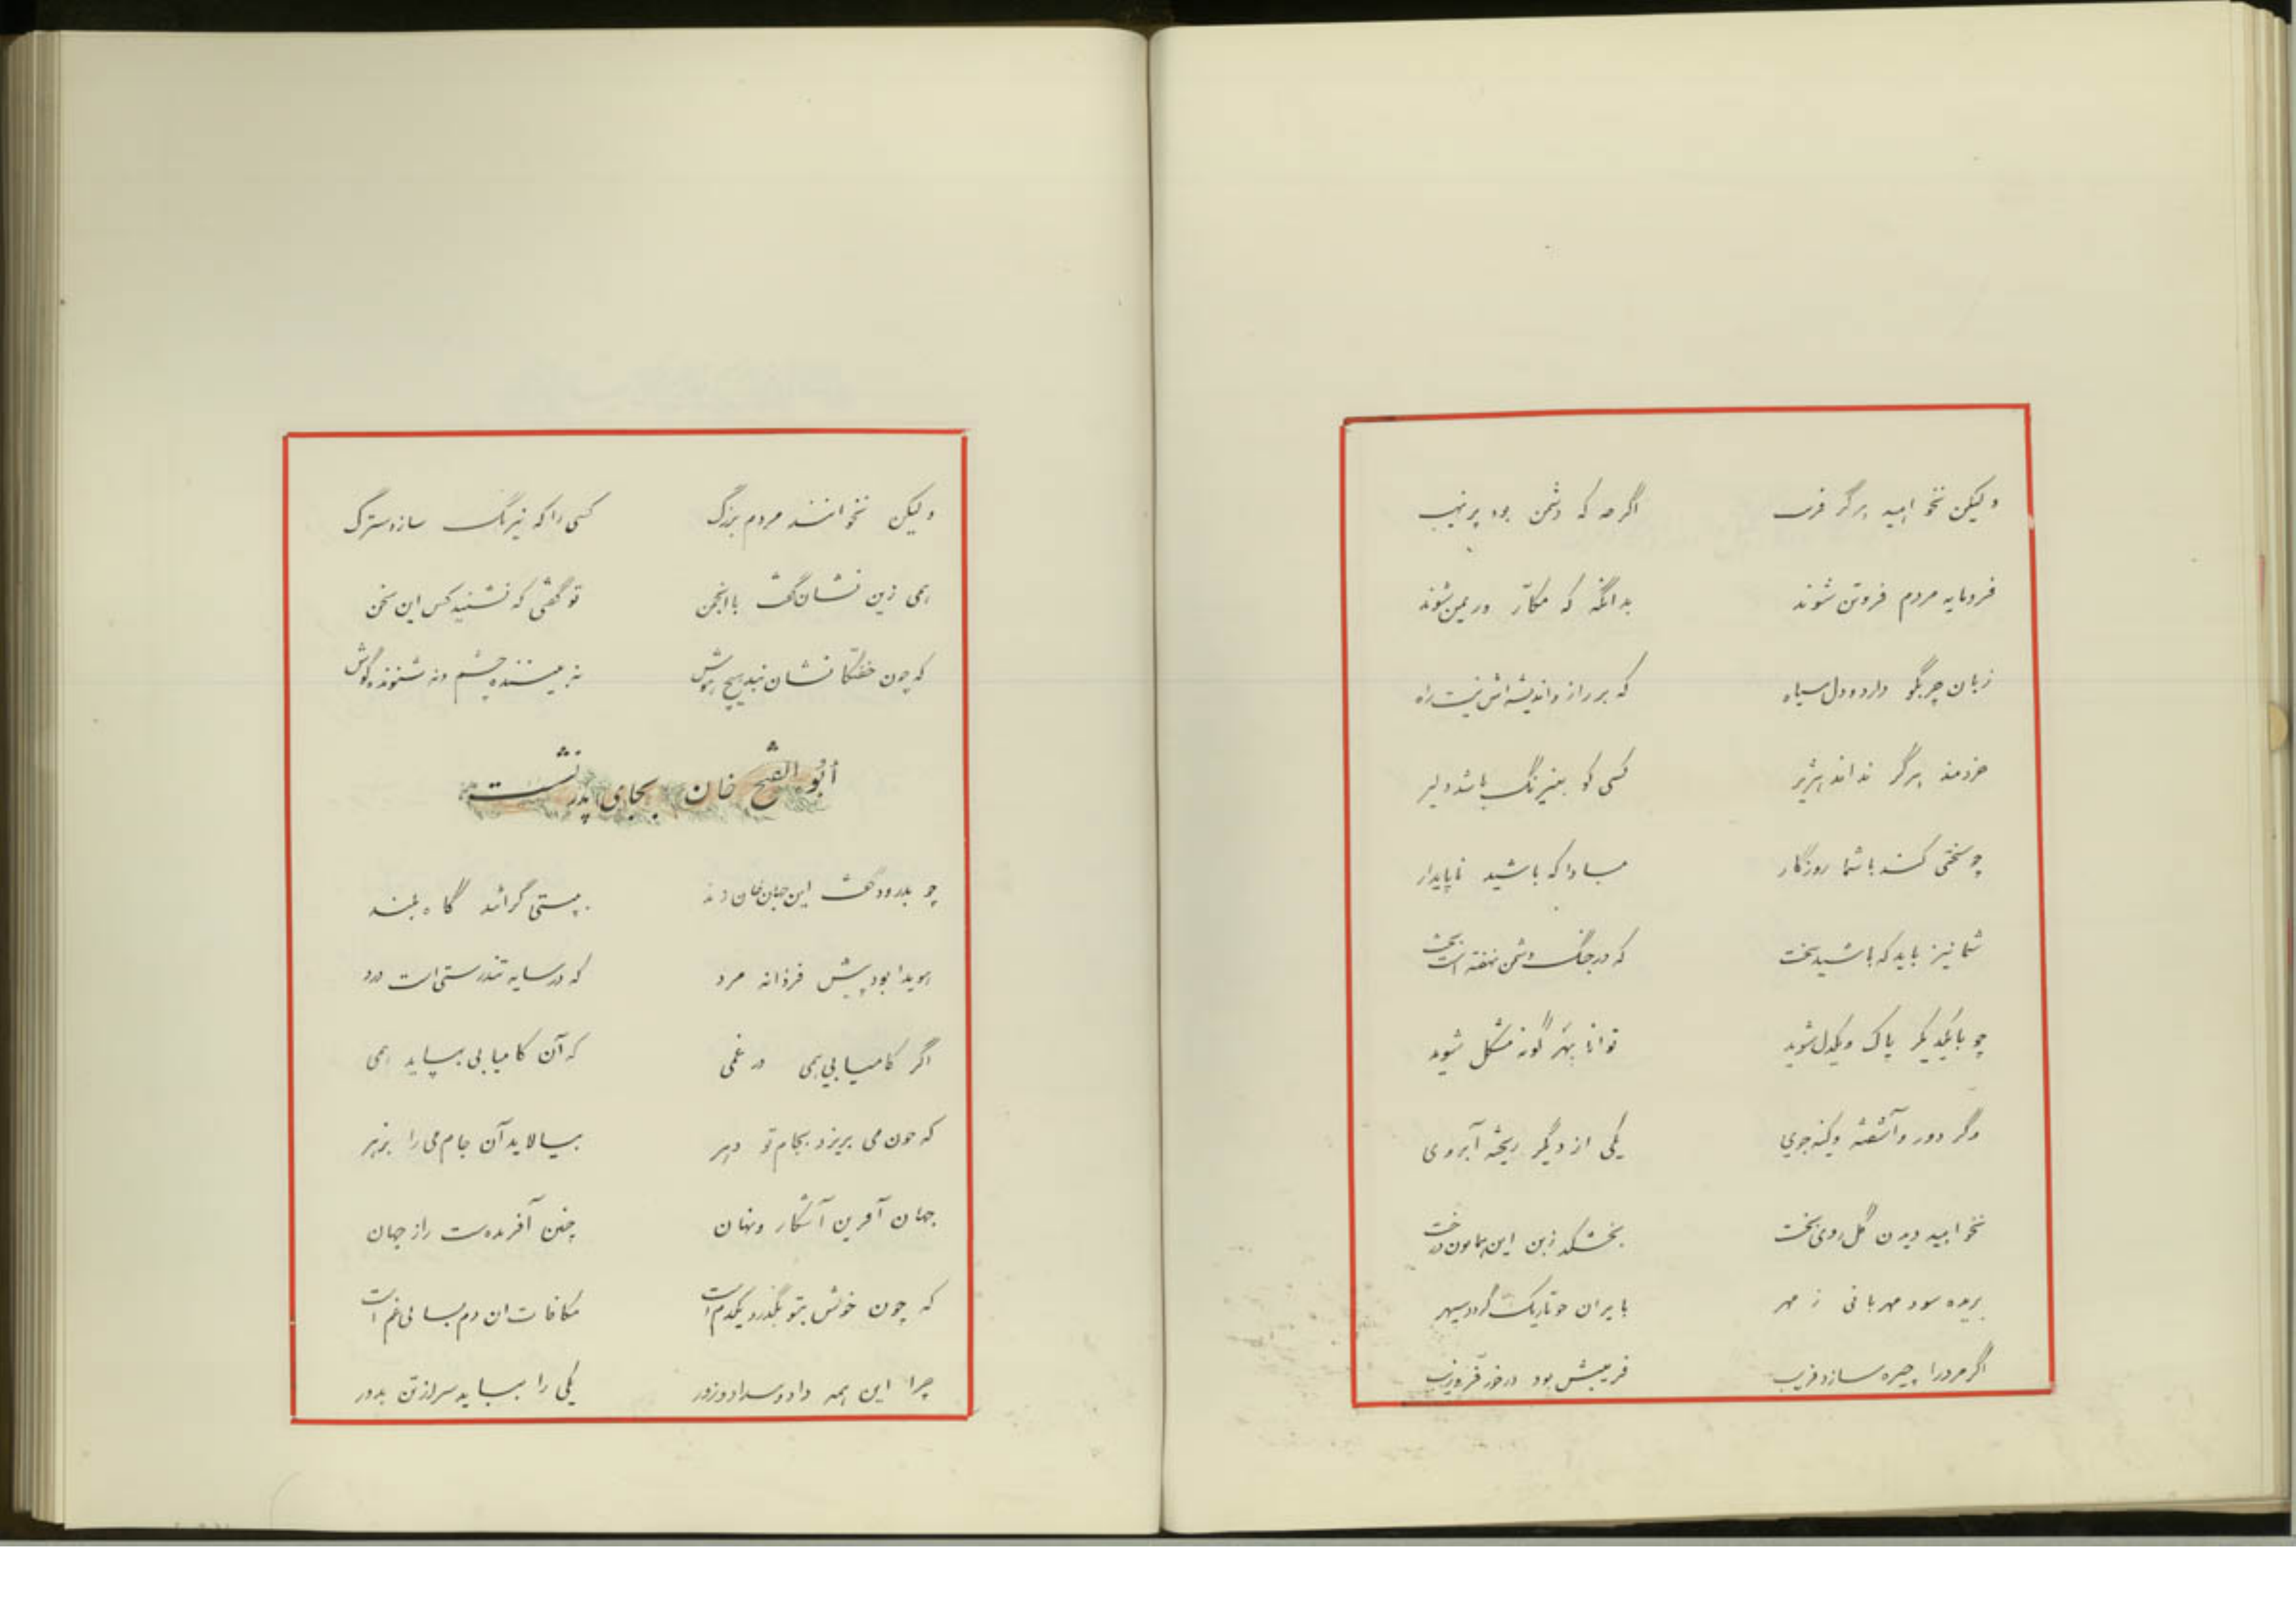 ولیکن نخواهید هرگز فریب اگرچه که دشمن بود پر نهیب
فرومایه مردم فروتن شوند بدانگه که مکار و ریمن شوند
زبان چربگو دارد و دل سیاه که بر راز و اندیشه‌اش نیست راه
خردمند هرگز نداند هژیر کسی کو بنیرنگ باشد دلیر
چو سختی کند با شما روزگار مبادا که باشید ناپایدار
شما نیز باید که باشید سخت که در جنگ دشمن نهفته است بخت
چو با یکدیگر پاک و یکدل شوید توانا بهر گونه مشکل شوید
وگر دور و آشفته و کینه جوی یکی از دیگر ریخته آبروی
نخواهید دیدن گل روی بخت بخشکد زبن این همایون درخت
بریده سود مهربانی ز مهر بایران چو تاریک گردد سپهر
اگر مرد را چیره سازد فریب فریبش بود درخور فر و زیب
ولیکن نخوانند مردم بزرگ کسی را که نیرنگ سازد سترگ
همی زین نشان گفت با انجمن تو گفتی که نشنید کس این سخن
که چون خفتگانشان نبد هیچ هوش نه بیننده چشم و نه شنونده گوش
أبو الفتح خان بجای پدر نشست
چو بدرود گفت این جهان خان زند بپستی گرائد گاه بلند
هویدا بود پیش فرزانه مرد که در سایه تندرستی است درد
اگر کامیابی همی در غمی که آن کامیابی بپاید همی
که چون می بریزد بجام تو دهر بیالاید آن جام می را بزهر
جهان آفرین آشکار و نهان چنین آفریده‌ست راز جهان
که چون خوش بتو بگذرد یکدم است مکافات ان دم بسا لی غم است
چرا این همه داد و بیداد و زور یکی را بباید سر از تن بدور